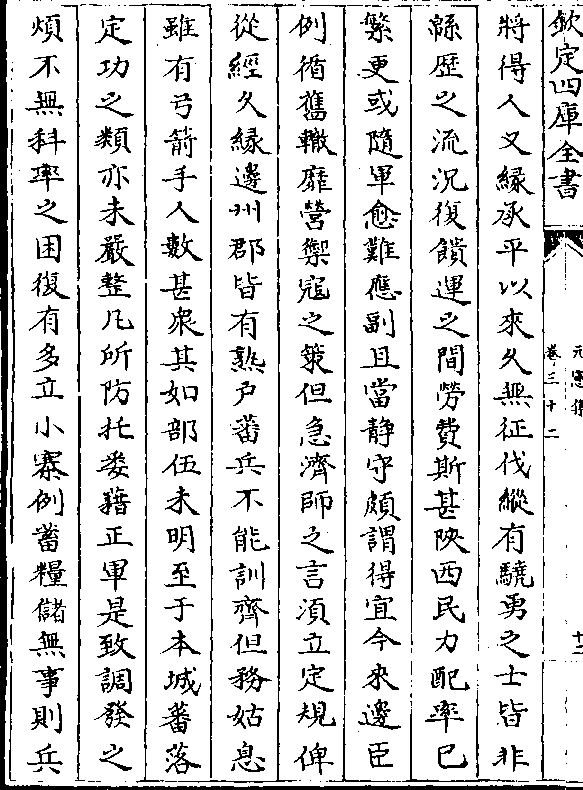 欽定四庫全書
元憲集
卷三十二
十二
將得人又縁承平以來久無征伐縱有驍勇之士皆非
緜歴之流況復饋運之間勞費斯甚陜西民力配率已
繁更或隨軍愈難應副且當静守頗謂得宜今來邊臣
例循舊轍靡營禦寇之䇿但急濟師之言湏立定規俾
從經久縁邊州郡皆有熟户蕃兵不能訓齊但務姑息
雖有弓箭手人數甚衆其如部伍未明至于本城蕃落
定功之類亦未嚴整凡所防托委藉正軍是致調發之
煩不無科率之困復有多立小寨例蓄糧儲無事則兵